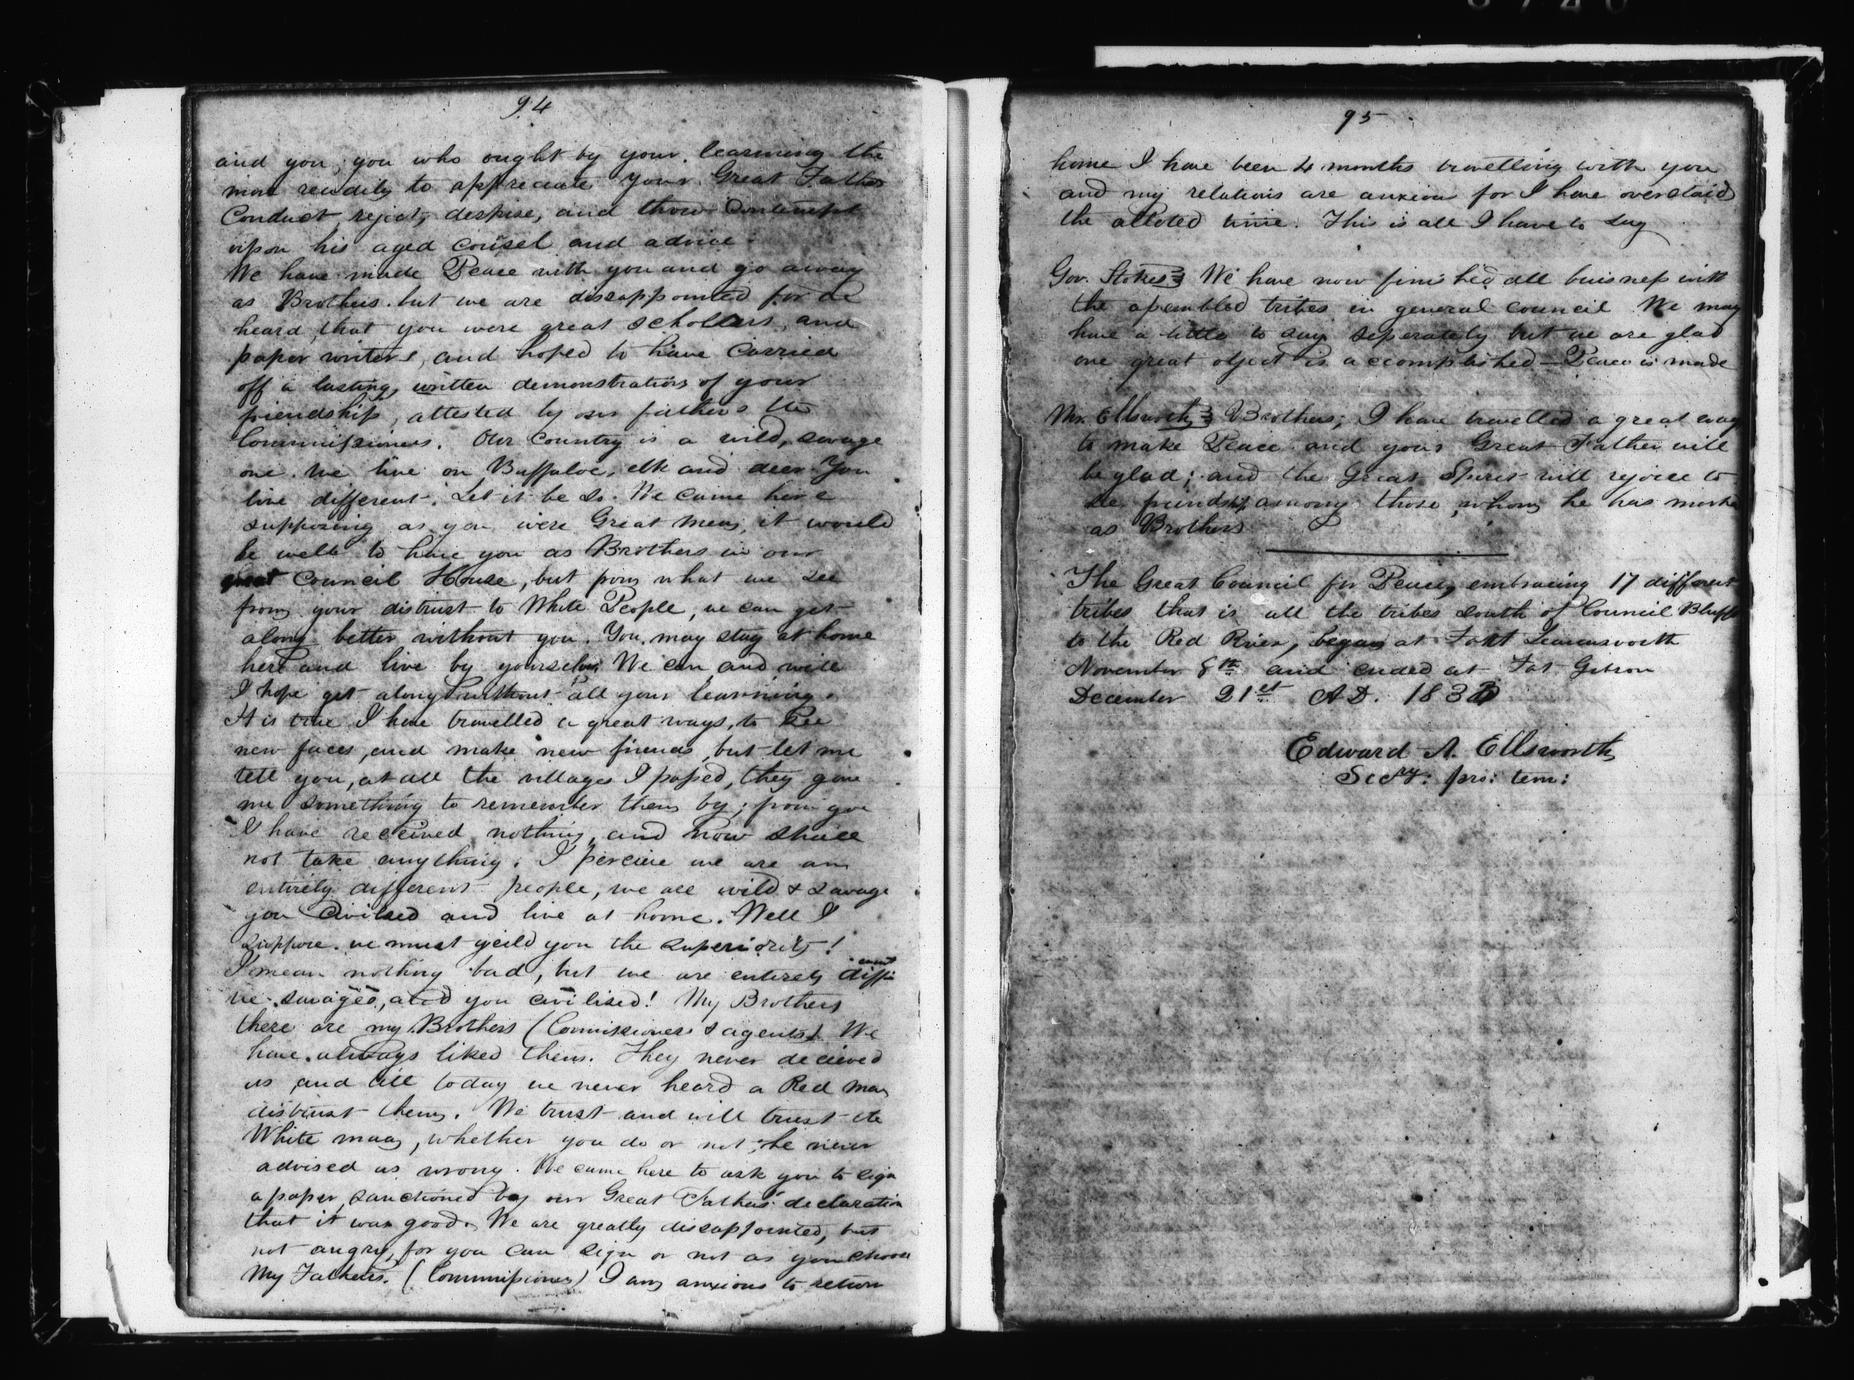 94
and you, you who ought by your learning the
more readily to appreciate your Great Fathers
Conduct, reject, despise, and throw contempt
upon his aged counsel and advice.
We have made Peace with you and go away
as Brothers. but we are dissappointed for we
heard, that you were great Schollars, and
paper writers, and hoped to have carried
off a lasting, written demonstration of your
friendship, attested by our fathers the
Commissioners. Our Country is a wild, savage
one. We live on Buffaloe, elk and deer. You
live different. Let it be so. We came here
supposing as you were Great men, it would
be well to have you as Brothers in our
great Council House, but from what we see
from your distrust to White People, we can get
along better without you. You may stay at home
here and live by yourselves. We can and will
I hope get along without all your learning.
It is true I have travelled a great ways, to see
new faces, and make new friends, but let me
tell you, at all the villages I passed, they gave
me something to remember them by; from you
I have received nothing, and now shall
not take anything. I percieve we are an
entirely different people, we are wild & savage
you civilised and live at home. Well I
suppose we must yeild you the superiority!
I mean nothing bad, but we are entirely different
we savages, and you civilised! My Brothers
there are my Brothers (Commissioners & agents). We
have always liked them. They never decieved
us, and till today we never heard a Red man
distrust them. We trust and will trust the
White man, whether you do or not, he never
advised us wrong. We came here to ask you to sign
a paper, sanctioned by our Great Fathers' declaration
that it was good. We are greatly dissappointed, but
not angry, for you can sign or not as you choose
My Fathers. (Commissioners) I am anxious to return
95
home I have been 4 months travelling with you
and my relations are anxious for I have overstaid
the alloted time. This is all I have to say
Gov. Stokes} We have now finished all buisness with
the assembled tribes in general council We may
have a little to say seperately but we are glad
one great object is accomplished — Peace is made
Mr. Ellsworth} Brothers; I have travelled a great way
to make Peace and your Great Father will
be glad; and the Great Spirit will rejoice to
see friendship among those, whom he has made
as Brothers
The Great Council for Peace, embracing 17 different
tribes, that is all the tribes south of Council Bluffs
to the Red River, began at Fort Leavensworth
November 8th and ended at Fort Gibson
December 21st A.D. 1833
Edward A. Ellsworth
Secry. pro: tem: